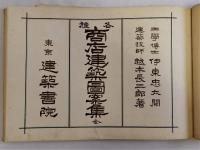 工學博士 伊東忠太閲
建築技師 越本長三郎著
各種 商店建築圖案集 全
東京 建築書院